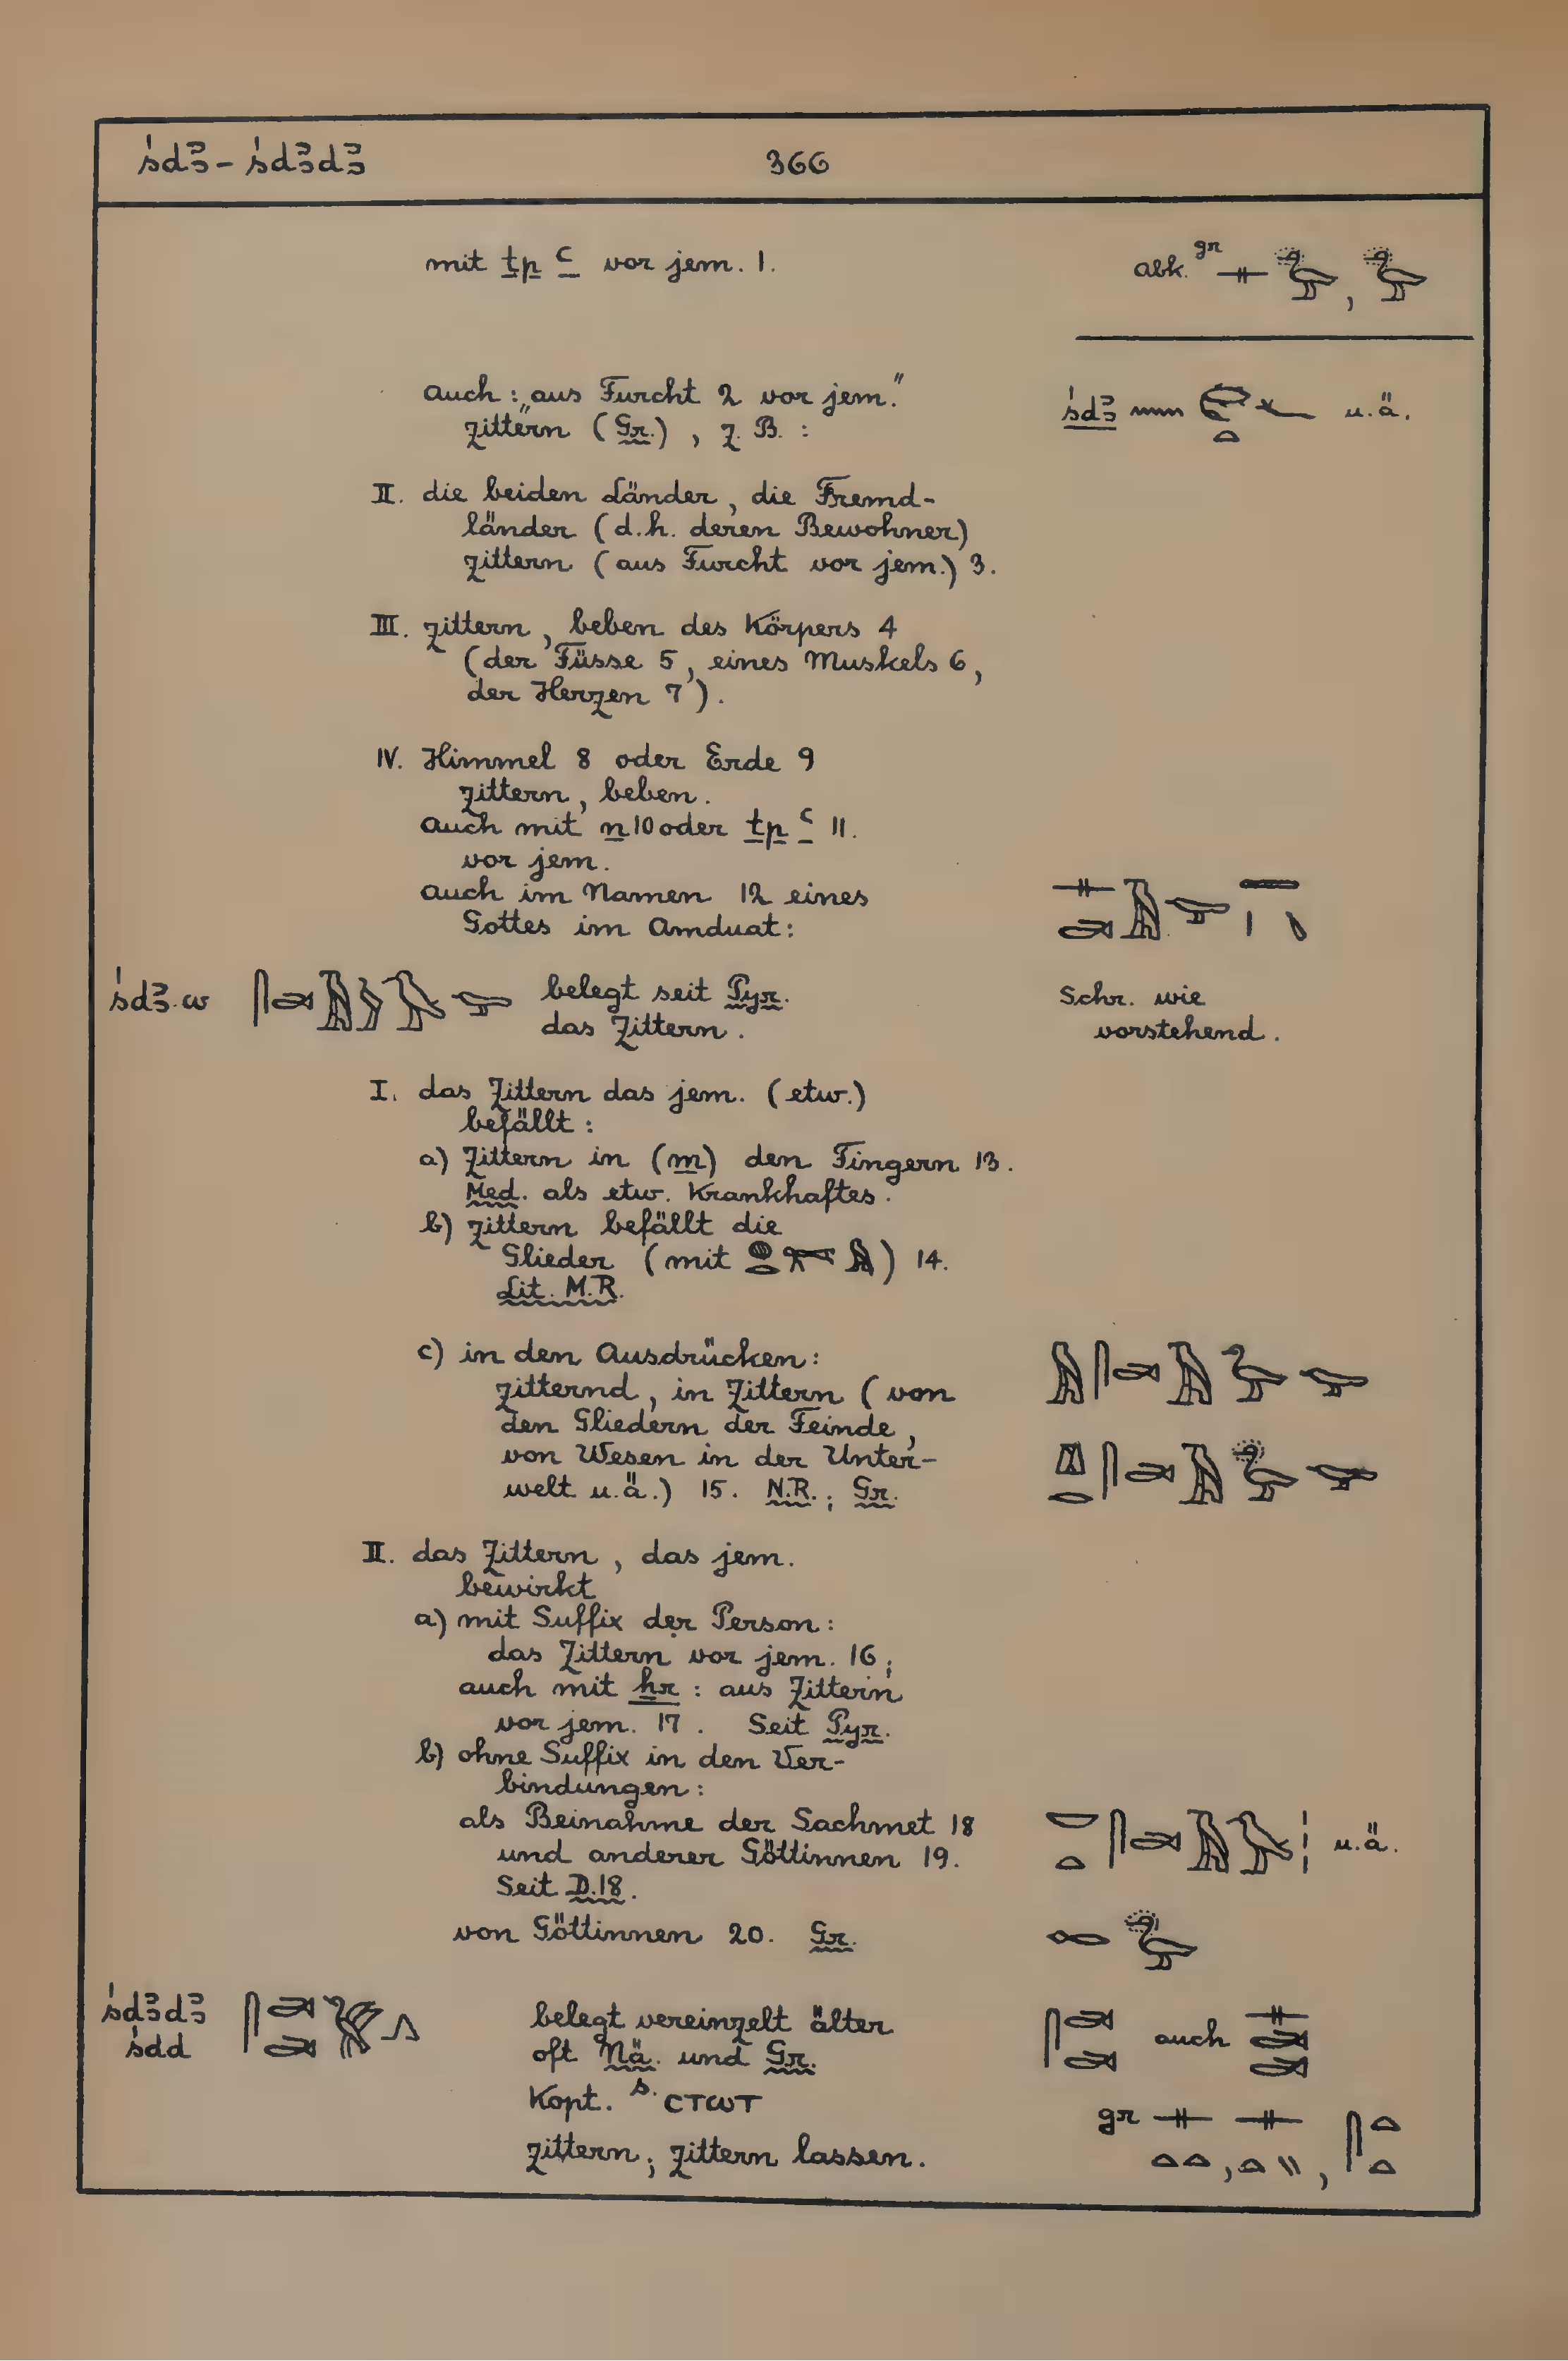 śdꜣ - śdꜣdꜣ
366
mit tp ꜥ vor jem. 1.
abk. gr
auch: „aus Furcht 2 vor jem."
zittern (Gr.), z. B.:
śdꜣ u.ä.
II. die beiden Länder, die Fremd-
länder (d.h. deren Bewohner)
zittern (aus Furcht vor jem.) 3.
III. zittern, beben des Körpers 4
(der Füsse 5, eines Muskels 6,
der Herzen 7).
IV. Himmel 8 oder Erde 9
zittern, beben.
auch mit n 10 oder tp ꜥ 11.
vor jem.
auch im Namen 12 eines
Gottes im Amduat:
śdꜣ.w belegt seit Pyr.
das Zittern.
Schr. wie
vorstehend.
I. das Zittern das jem. (etw.)
befällt:
a) Zittern in (m) den Fingern 13.
Med. als etw. Krankhaftes.
b) zittern befällt die
Glieder (mit ) 14.
Lit. M.R.
c) in den Ausdrücken:
zitternd, in Zittern (von
den Gliedern der Feinde,
von Wesen in der Unter-
welt u.ä.) 15. N.R.; Gr.
II. das Zittern, das jem.
bewirkt
a) mit Suffix der Person:
das Zittern vor jem. 16;
auch mit ḥr: aus Zittern
vor jem. 17. Seit Pyr.
b) ohne Suffix in den Ver-
bindungen:
als Beinahme der Sachmet 18
und anderer Göttinnen 19.
Seit D.18.
u.ä.
von Göttinnen 20. Gr.
śdꜣdꜣ
śdd
belegt vereinzelt älter
oft Nä. und Gr.
auch
Kopt. S. ⲥⲧⲱⲧ
gr
zittern; zittern lassen.